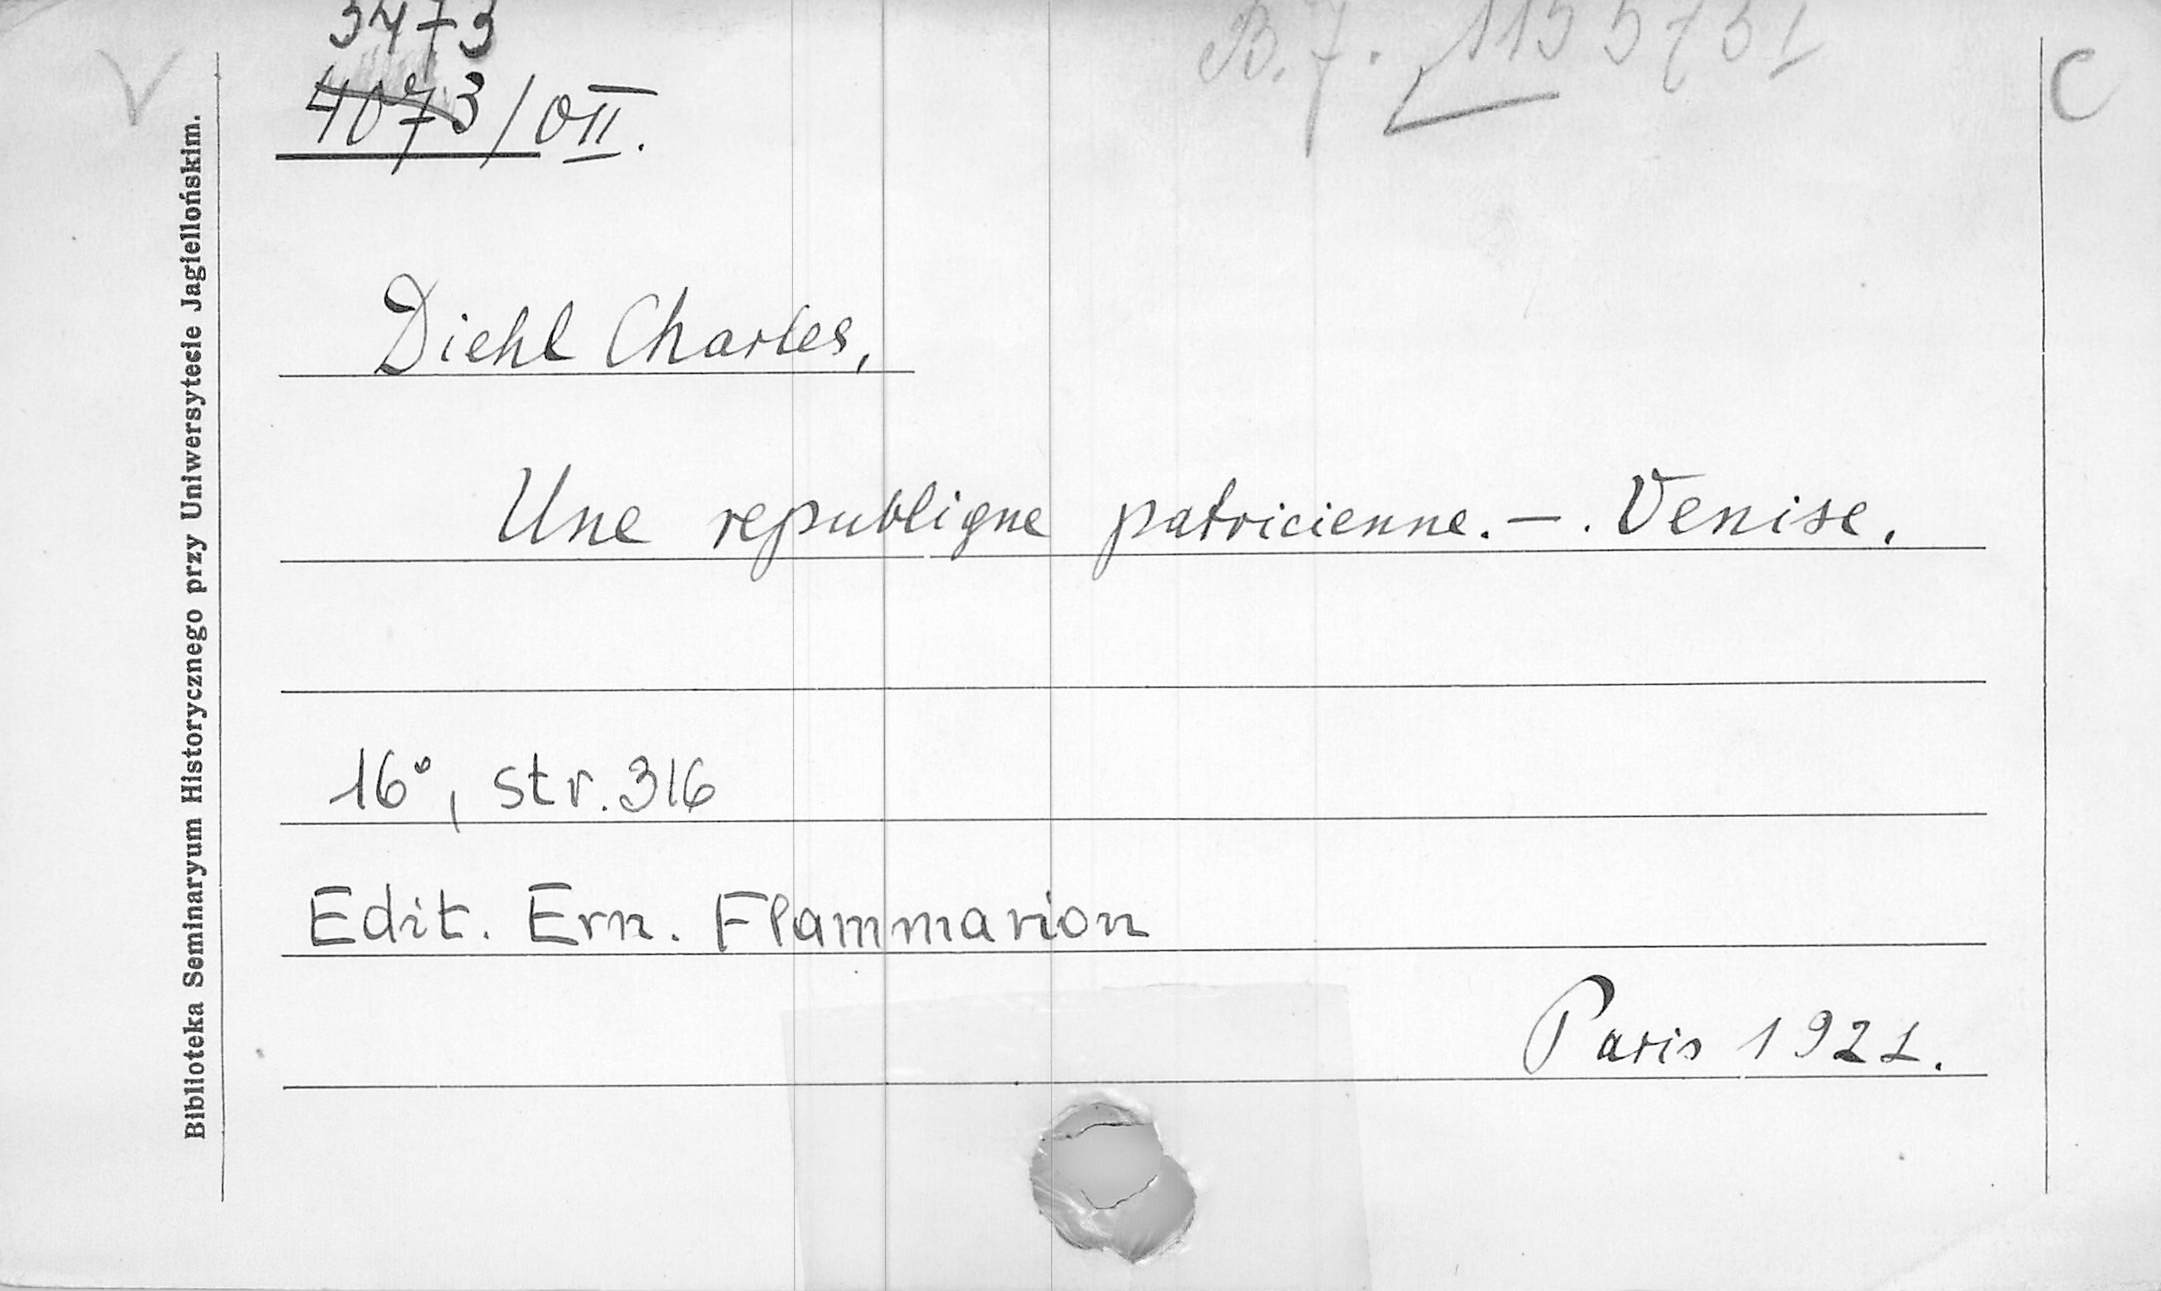 V
3473
4073/OII.
B.J. 1155731
C
Diehl Charles,
Une republique patricienne. — . Venise.
16°, str. 316
Edit. Ern. Flammarion
Paris 1921.
Biblioteka Seminaryum Historycznego przy Uniwersytecie Jagiellońskim.